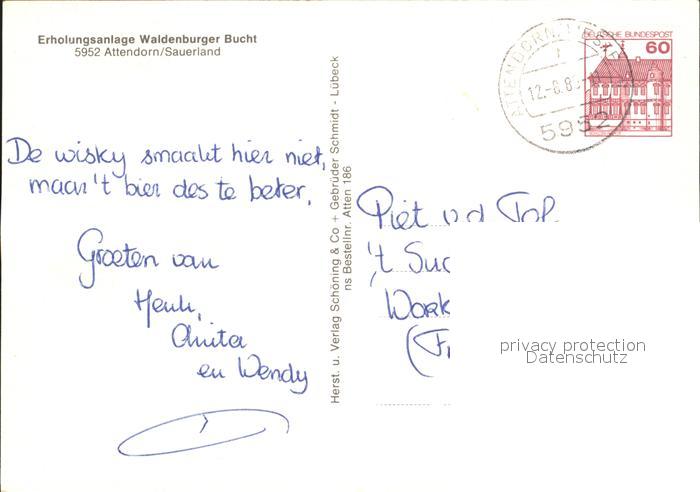 Erholungsanlage Waldenburger Bucht
5952 Attendorn/Sauerland
De wisky smaakt hier niet,
maar 't bier des te beter.
Groeten van
Henk,
Anita
en Wendy
Herst. u. Verlag Schöning & Co + Gebrüder Schmidt - Lübeck
ns Bestellnr. Atten 186
DEUTSCHE BUNDESPOST
60
ATTENDORN
12.-8.8
5952
Piet v d
't
Work
privacy protection
Datenschutz